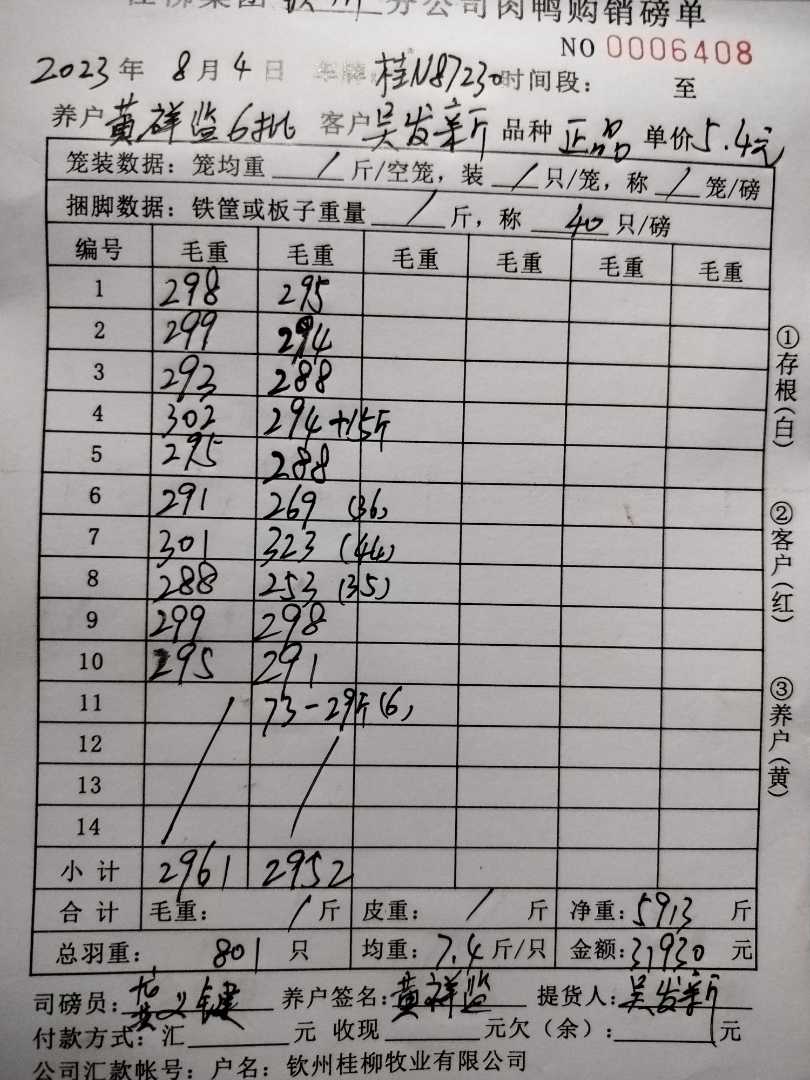 桂柳集团 钦州 分公司肉鸭购销磅单
NO 0006408
2023 年 8 月 4 日 车牌: 桂N87230 时间段: 至
养户 黄祥监6批 客户 吴发新 品种 正品 单价 5.4元
笼装数据: 笼均重 / 斤/空笼, 装 / 只/笼, 称 / 笼/磅
捆脚数据: 铁筐或板子重量 / 斤, 称 40 只/磅
编号 毛重 毛重 毛重 毛重 毛重 毛重
1 298 295
2 299 294
3 293 288
4 302 294+15斤
5 295 288
6 291 269 (36)
7 301 323 (44)
8 288 253 (35)
9 299 298
10 295 291
11 73-29斤(6)
12
13
14
小计 2961 2952
合计 毛重: / 斤 皮重: / 斤 净重: 5913 斤
总羽重: 801 只 均重: 7.4 斤/只 金额: 31930 元
司磅员: 黄义键 养户签名: 黄祥监 提货人: 吴发新
付款方式: 汇 元 收现 元欠(余): 元
公司汇款帐号: 户名: 钦州桂柳牧业有限公司
①存根(白)
②客户(红)
③养户(黄)